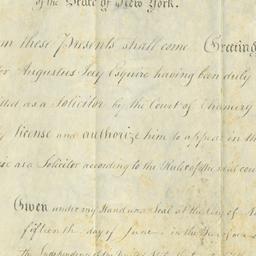 of the State of New York.
m these Presents shall come Greeting
or Augustus Jay Esquire having been duly
tted as a Solicitor by the Court of Chancery
y license and authorize him to appear in th
ie as a Solicitor according to the Rules of the said cou
Given under my Hand and Seal at the City of
fifteenth day of June in the
the Independence of the